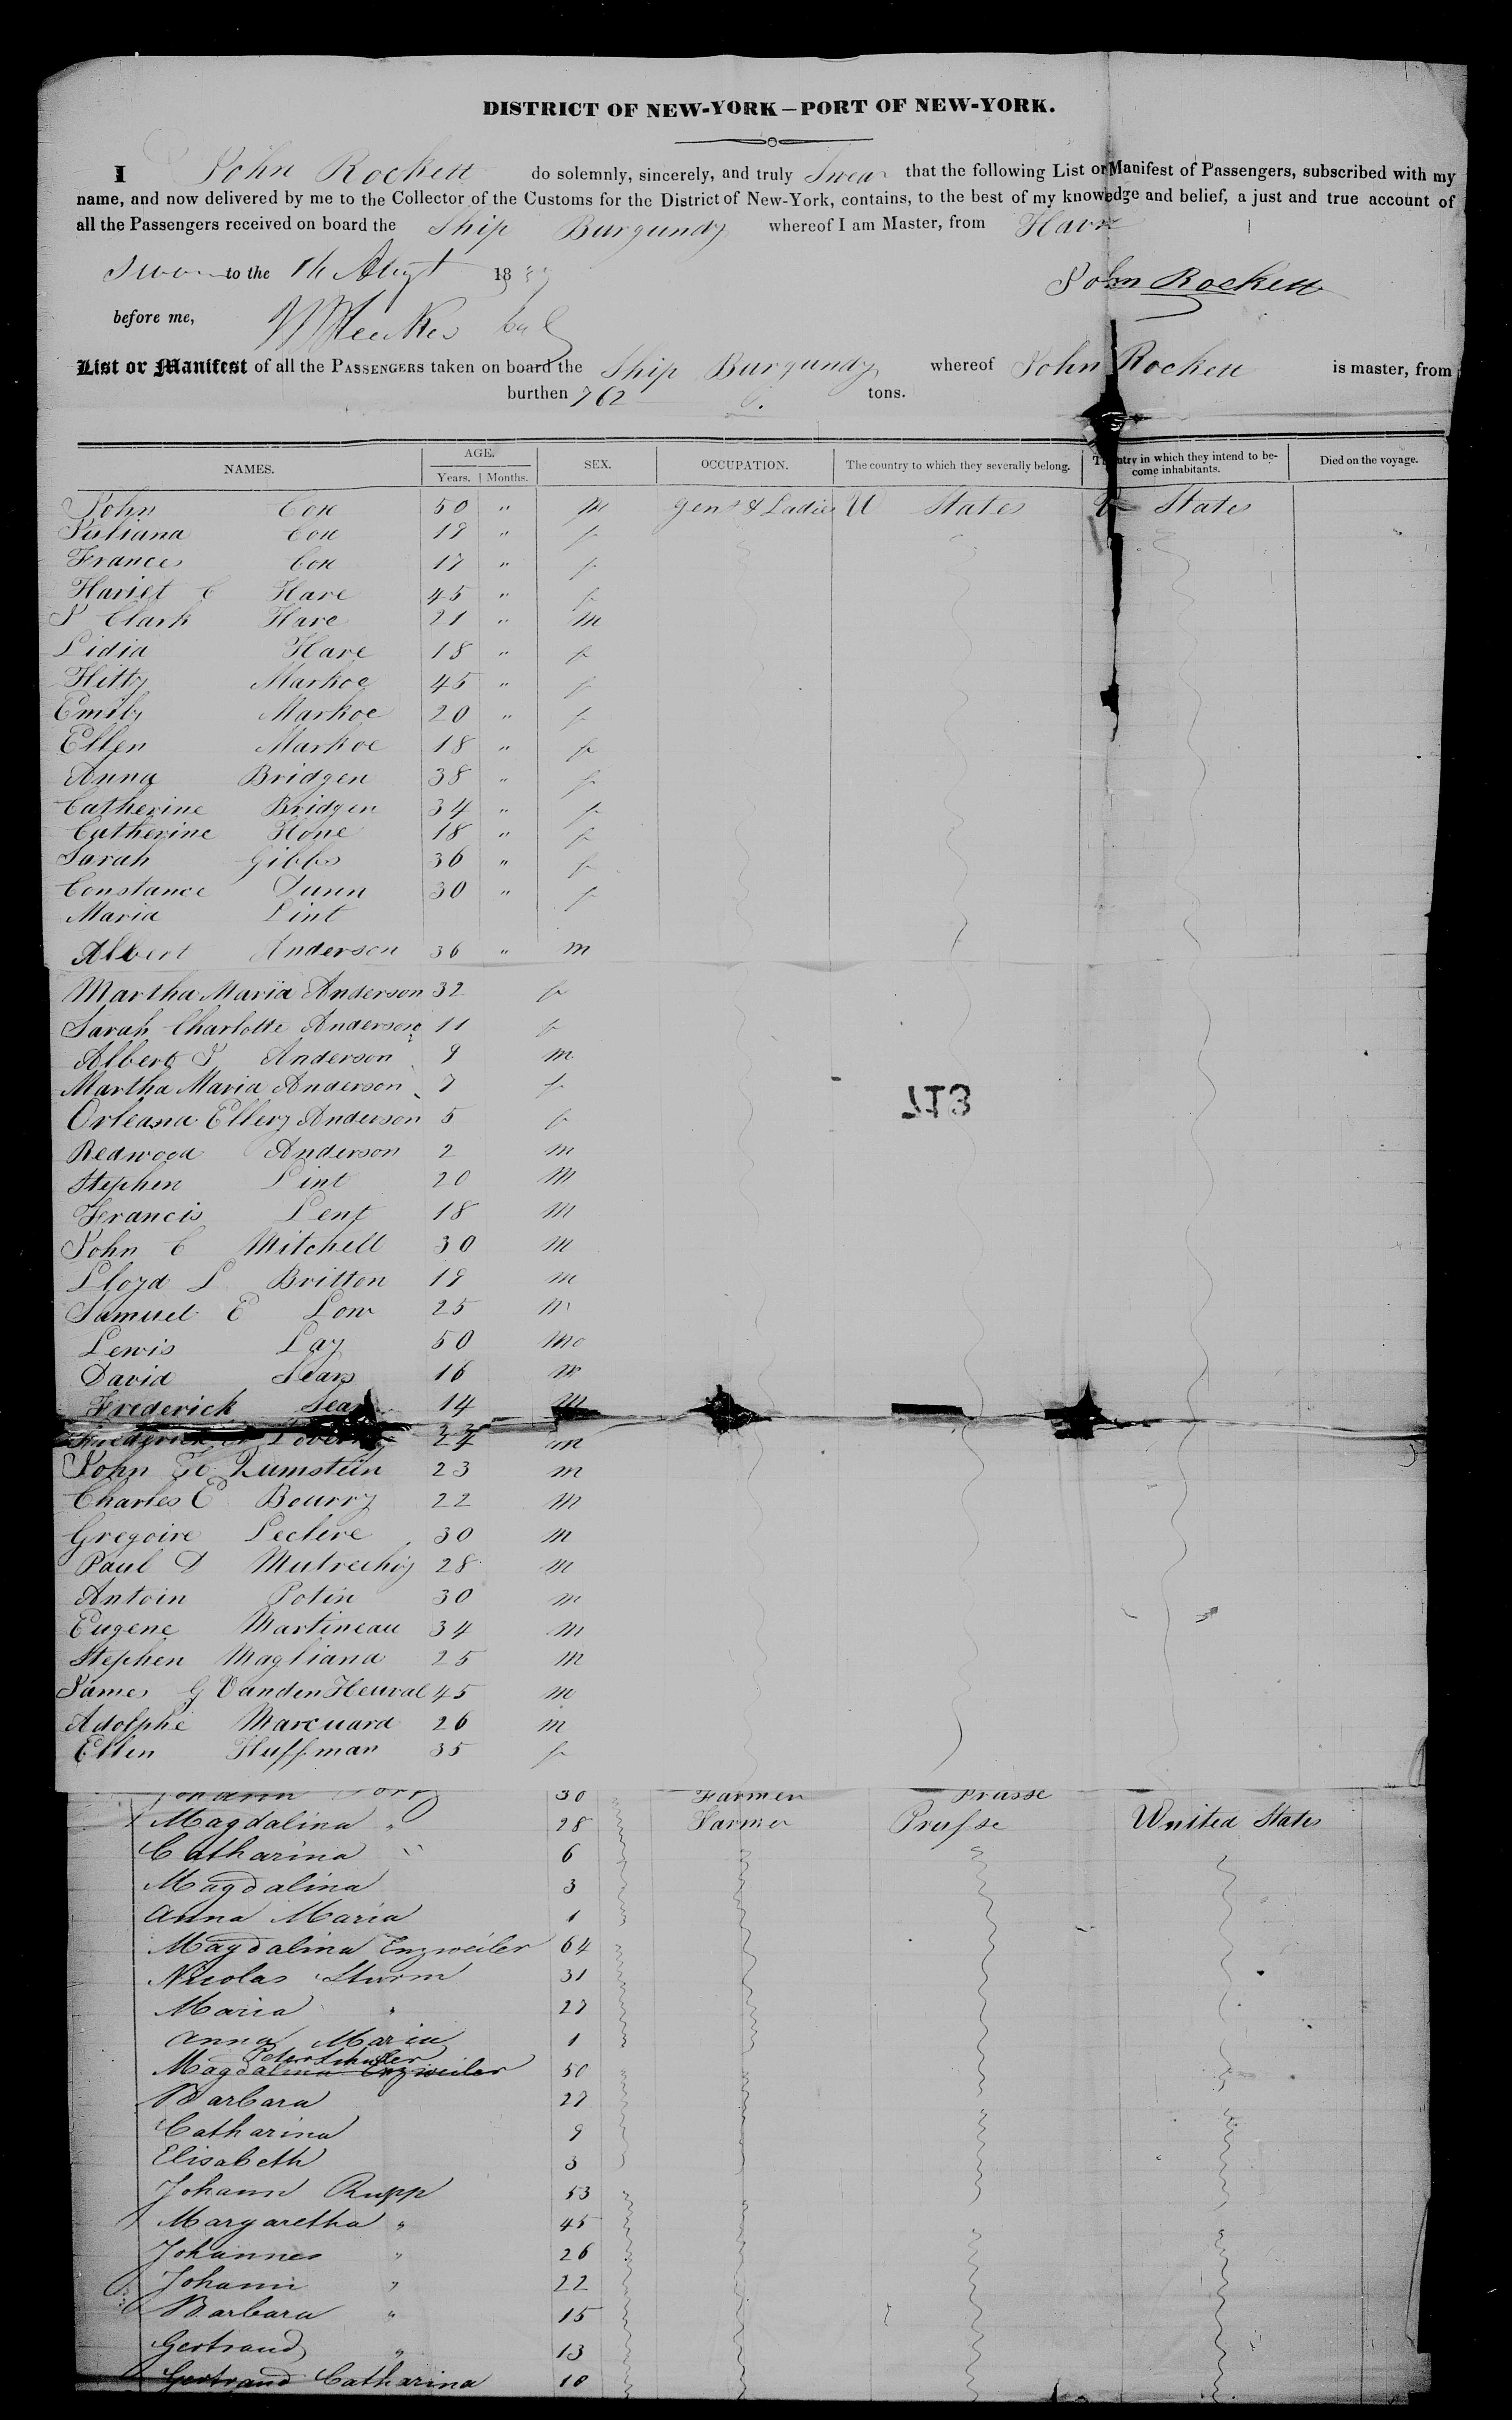 DISTRICT OF NEW-YORK—PORT OF NEW-YORK.
I John Rockett do solemnly, sincerely, and truly Swear that the following List or Manifest of Passengers, subscribed with my
name, and now delivered by me to the Collector of the Customs for the District of New-York, contains, to the best of my knowedge and belief, a just and true account of
all the Passengers received on board the Ship Burgundy whereof I am Master, from Havre
Sworn to the 16 Augt 18
John Rockett
before me,
List or Manifest of all the PASSENGERS taken on board the Ship Burgundy whereof John Rockett is master, from
burthen 762 tons.
NAMES. AGE. Years. Months. SEX. OCCUPATION. The country to which they severally belong. The country in which they intend to become inhabitants. Died on the voyage.
John Cox 50 " m Gent & Ladies U States U States
Juliana Cox 19 " f
Frances Cox 17 " f
Hariet C Hare 45 " f
J Clark Hare 21 " m
Lidia Hare 18 " f
Hitty Markoe 45 " f
Emily Markoe 20 " f
Ellen Markoe 18 " f
Anna Bridgen 38 " f
Catherine Bridgen 34 " f
Catherine Hone 18 " f
Sarah Gibbs 36 " f
Constance Dunn 30 " f
Maria Lint
Albert Anderson 36 " m
Martha Maria Anderson 32 f
Sarah Charlotte Anderson 11 f
Albert J Anderson 9 m
Martha Maria Anderson 7 f
713
Orleana Ellery Anderson 5 f
Redwood Anderson 2 m
Stephen Lint 20 m
Francis Lent 18 m
John C Mitchell 30 m
Lloyd L Britton 19 m
Samuel E Low 25 m
Lewis Lay 50 m
David Sears 16 m
Frederick Sears 14 m
Frederick 24 m
John Zumstein 23 m
Charles E Bourry 22 m
Gregoire Leclere 30 m
Paul D 28 m
Antoin Potin 30 m
Eugene Martineau 34 m
Stephen Magliana 25 m
James G Vanden Heuval 45 m
Adolphe Marcuard 26 m
Ellen Huffman 35 f
Johann 30 Farmer Prusse
Magdalina " 28 Farmer Prusse United States
Catharina " 6
Magdalina 3
Anna Maria 1
Magdalina Enzweiler 64
Nicolas Sturm 31
Maria " 27
Anna Maria 1
Peter Schuster
Magdalina Enzweiler 50
Barbara 27
Catharina 9
Elisabeth 3
Johann Rupp 53
Margaretha " 45
Johannes " 26
Johann " 22
Barbara " 15
Gertraud " 13
Gertraud Catharina 10